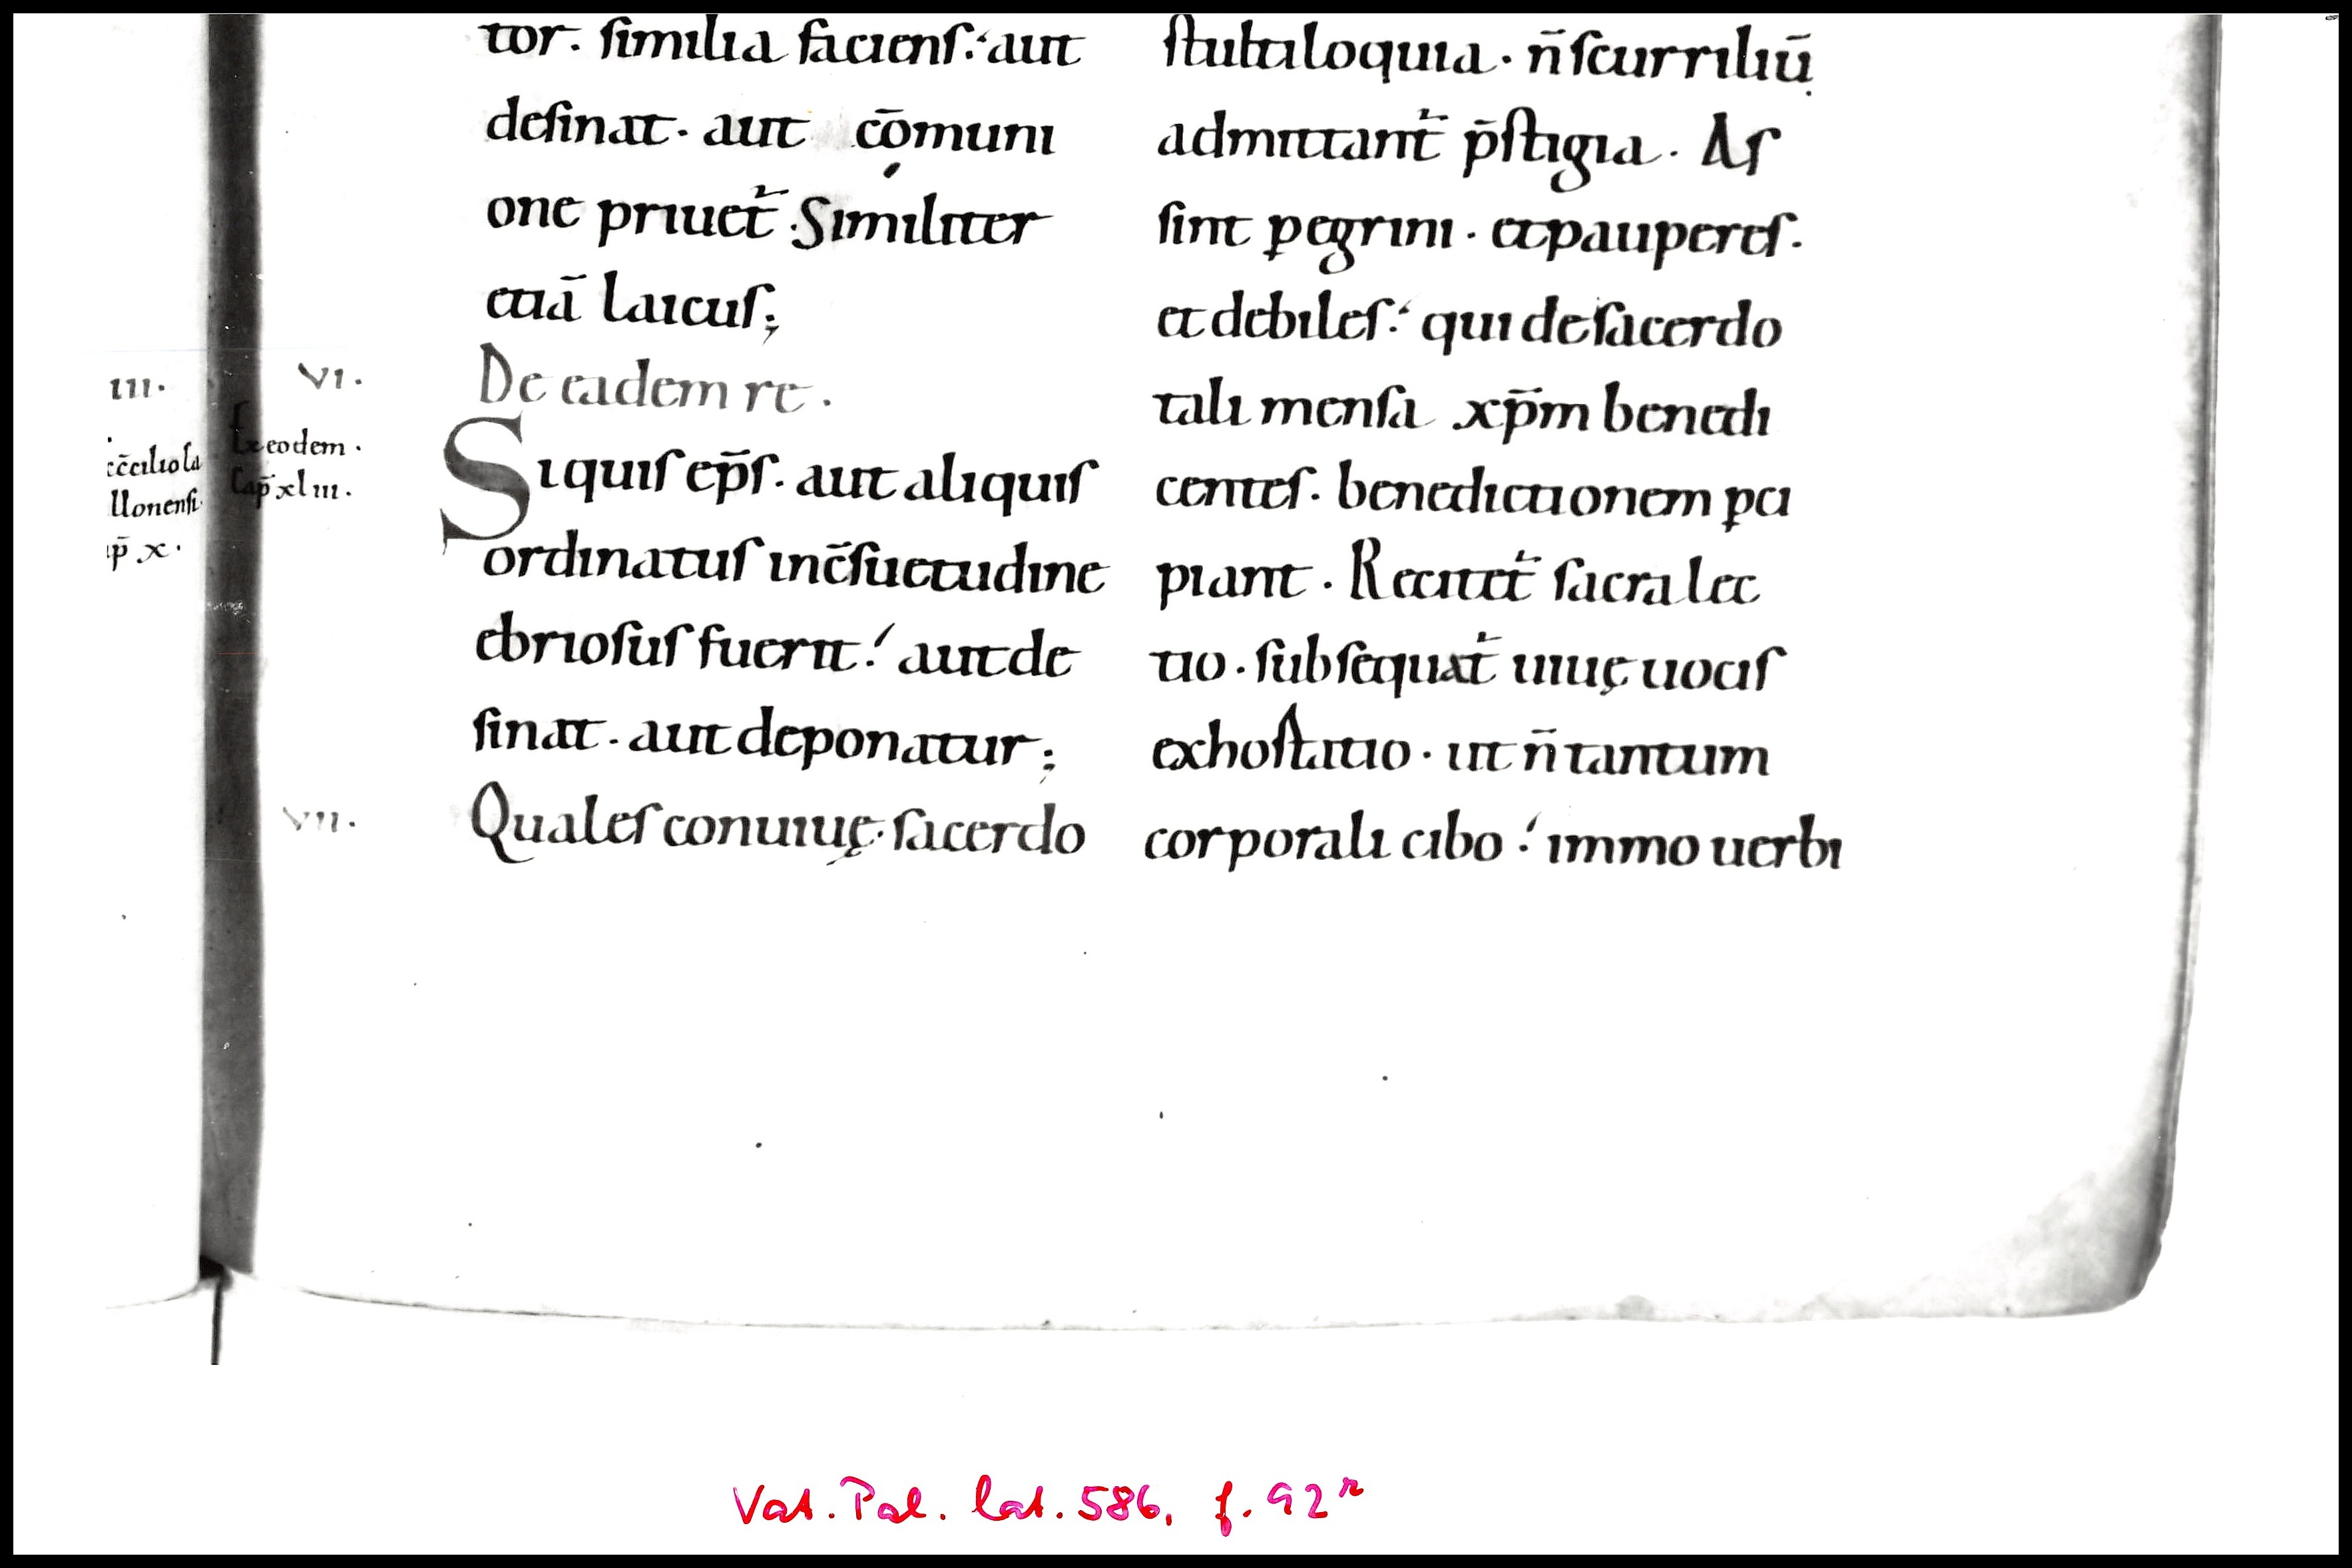 tor. similia faciens:́ aut
desinat. aut cōmuni
one priuet᷑. Similiter
etiā laicus;
De eadem re.
Siquis ep̄s. aut aliquis
ordinatus inc̄suetudine
ebriosus fuerit:́ aut de
sinat. aut deponatur;
Quales conuiuę sacerdo
VI.
Ex eodem.
Cap̄ xliii.
VII.
III.
llonensi.
p̄. x.
stultiloquia. n̄ scurriliū
admittant᷑ p̄stigia. As
sint ꝑegrini. et pauperes.
et debiles:́ qui de sacerdo
tali mensa xp̄m benedi
centes. benedictionem ꝑci
piant. Recitet᷑ sacra lec
tio. subsequat᷑ uiuę uocis
exhortatio. ut n̄ tantum
corporali cibo:́ immo uerbi
Vat. Pal. lat. 586, f. 92r